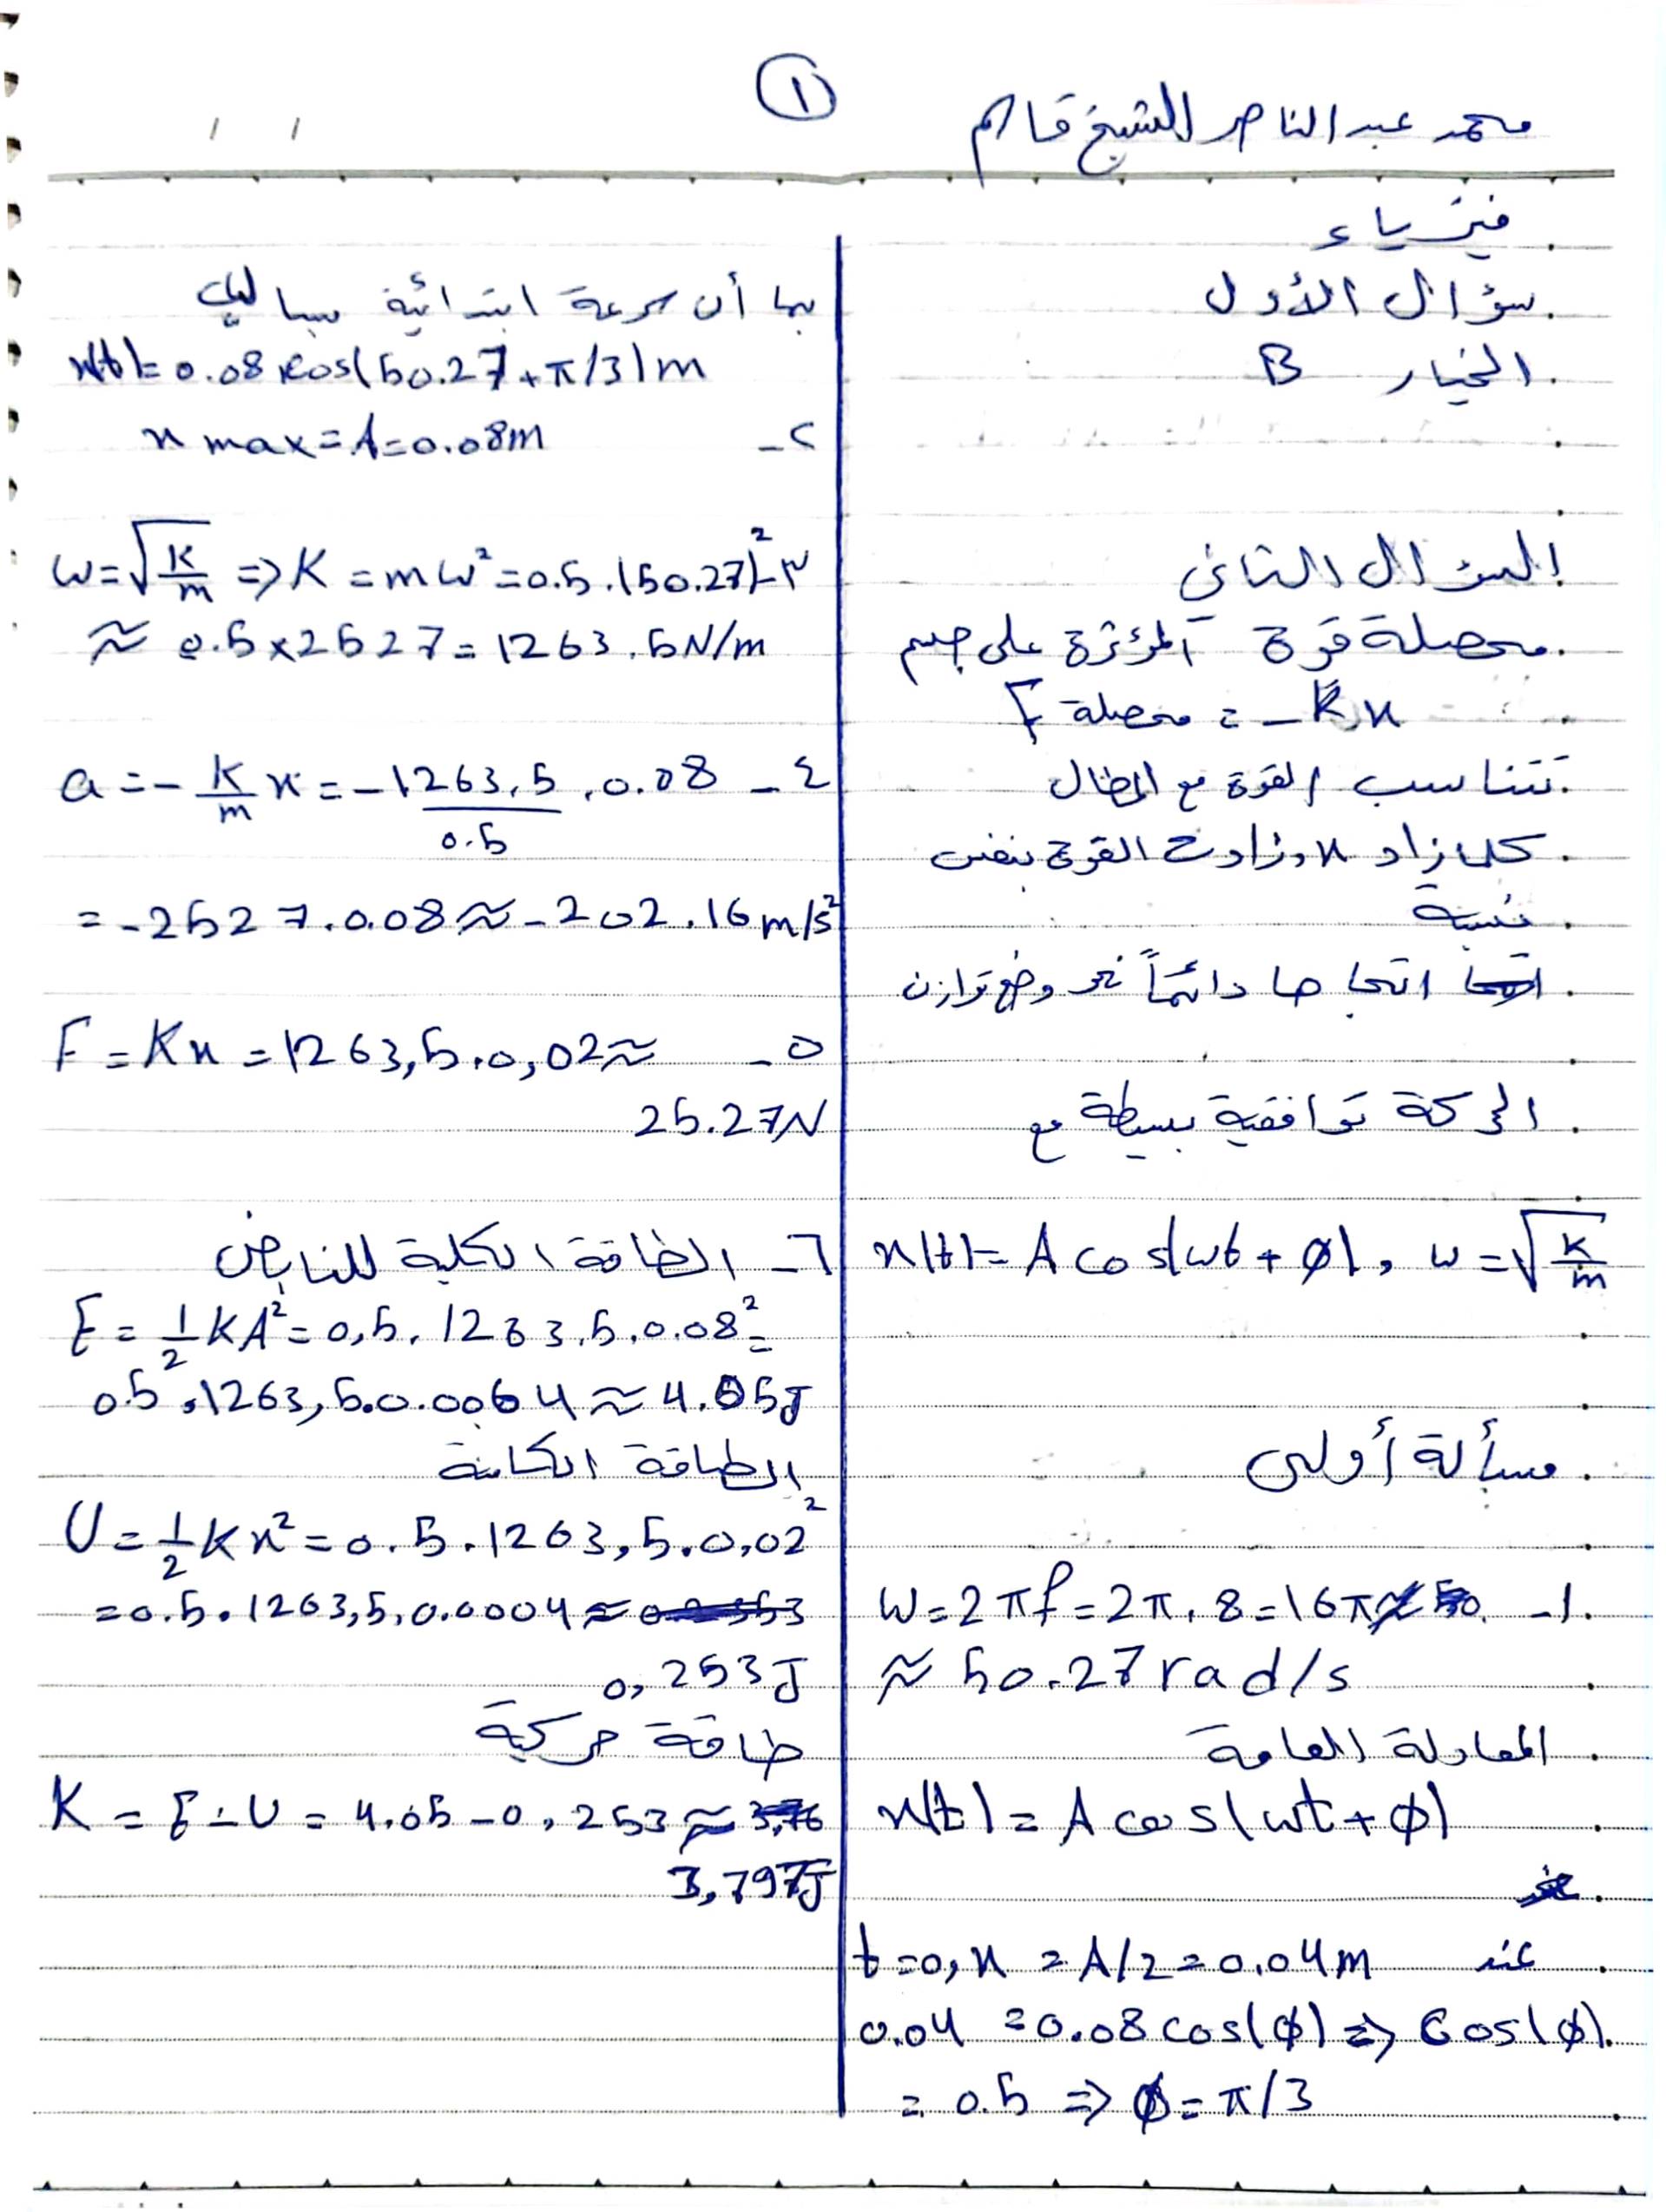 ١
محمد عبد الناصر الشيخ قاسم
فيزياء
سؤال الأول
الخيار B
السؤال الثاني
محصلة قوة المؤثرة على جسم
F محصلة = -Kx
تتناسب القوة مع المطال
كلما زاد x وزادت القوة بنفس
نسبة
اتجاها دائماً نحو وضع توازن
الحركة توافقية بسيطة مع
x(t) = A cos(ωt + φ), ω = √(K/m)
مسألة أولى
1- ω = 2πf = 2π . 8 = 16π
≈ 50.27 rad/s
المعادلة العامة
x(t) = A cos(ωt + φ)
عند t=0, x = A/2 = 0.04m
0.04 = 0.08 cos(φ) => Cos(φ)
= 0.5 => φ = π/3
بما أن سرعة ابتدائية سالبة
x(t) = 0.08 cos(50.27 + π/3) m
٢- x max = A = 0.08m
٣- ω = √(K/m) => K = mω² = 0.5 . (50.27)²
≈ 0.5 x 2527 = 1263.5 N/m
٤- a = - K/m x = - 1263,5/0.5 . 0.08
= -2527 . 0.08 ≈ -202.16 m/s²
٥- F = Kx = 1263,5 . 0,02 ≈
25.27N
٦- الطاقة الكلية للنابض
E = 1/2 KA² = 0,5 . 1263,5 . 0.08² =
0.5 . 1263,5 . 0.0064 ≈ 4.05J
الطاقة الكامنة
U = 1/2 Kx² = 0.5 . 1263,5 . 0,02²
= 0.5 . 1263,5 . 0.0004 ≈
0,253J
طاقة حركية
K = E - U = 4.05 - 0,253 ≈
3,797J